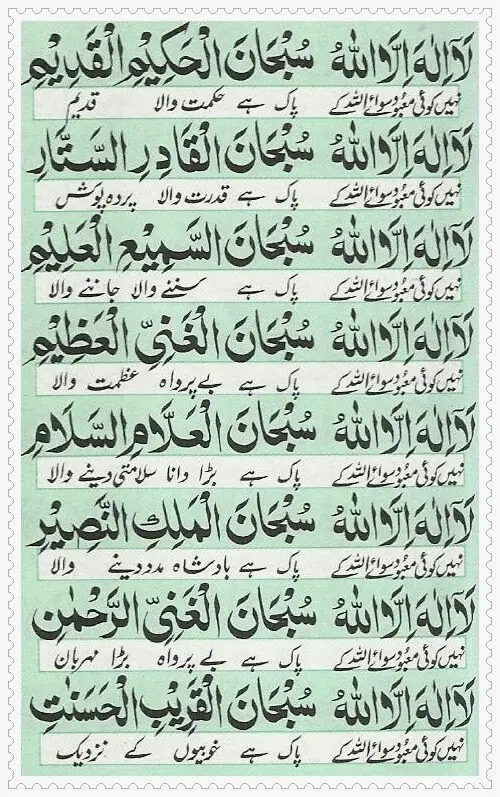 لَآ اِلٰهَ اِلَّا اللّٰهُ سُبْحَانَ الْحَكِيْمِ الْقَدِيْمِ
نہیں کوئی معبود سوائے اللہ کے پاک ہے حکمت والا قدیم
لَآ اِلٰهَ اِلَّا اللّٰهُ سُبْحَانَ الْقَادِرِ السَّتَّارِ
نہیں کوئی معبود سوائے اللہ کے پاک ہے قدرت والا پردہ پوش
لَآ اِلٰهَ اِلَّا اللّٰهُ سُبْحَانَ السَّمِيْعِ الْعَلِيْمِ
نہیں کوئی معبود سوائے اللہ کے پاک ہے سننے والا جاننے والا
لَآ اِلٰهَ اِلَّا اللّٰهُ سُبْحَانَ الْغَنِيِّ الْعَظِيْمِ
نہیں کوئی معبود سوائے اللہ کے پاک ہے بے پرواہ عظمت والا
لَآ اِلٰهَ اِلَّا اللّٰهُ سُبْحَانَ الْعَلَّامِ السَّلَامِ
نہیں کوئی معبود سوائے اللہ کے پاک ہے بڑا دانا سلامتی دینے والا
لَآ اِلٰهَ اِلَّا اللّٰهُ سُبْحَانَ الْمَلِكِ النَّصِيْرِ
نہیں کوئی معبود سوائے اللہ کے پاک ہے بادشاہ مدد دینے والا
لَآ اِلٰهَ اِلَّا اللّٰهُ سُبْحَانَ الْغَنِيِّ الرَّحْمٰنِ
نہیں کوئی معبود سوائے اللہ کے پاک ہے بے پرواہ بڑا مہربان
لَآ اِلٰهَ اِلَّا اللّٰهُ سُبْحَانَ الْقَرِيْبِ الْحَسَنٰتِ
نہیں کوئی معبود سوائے اللہ کے پاک ہے خوبیوں کے نزدیک